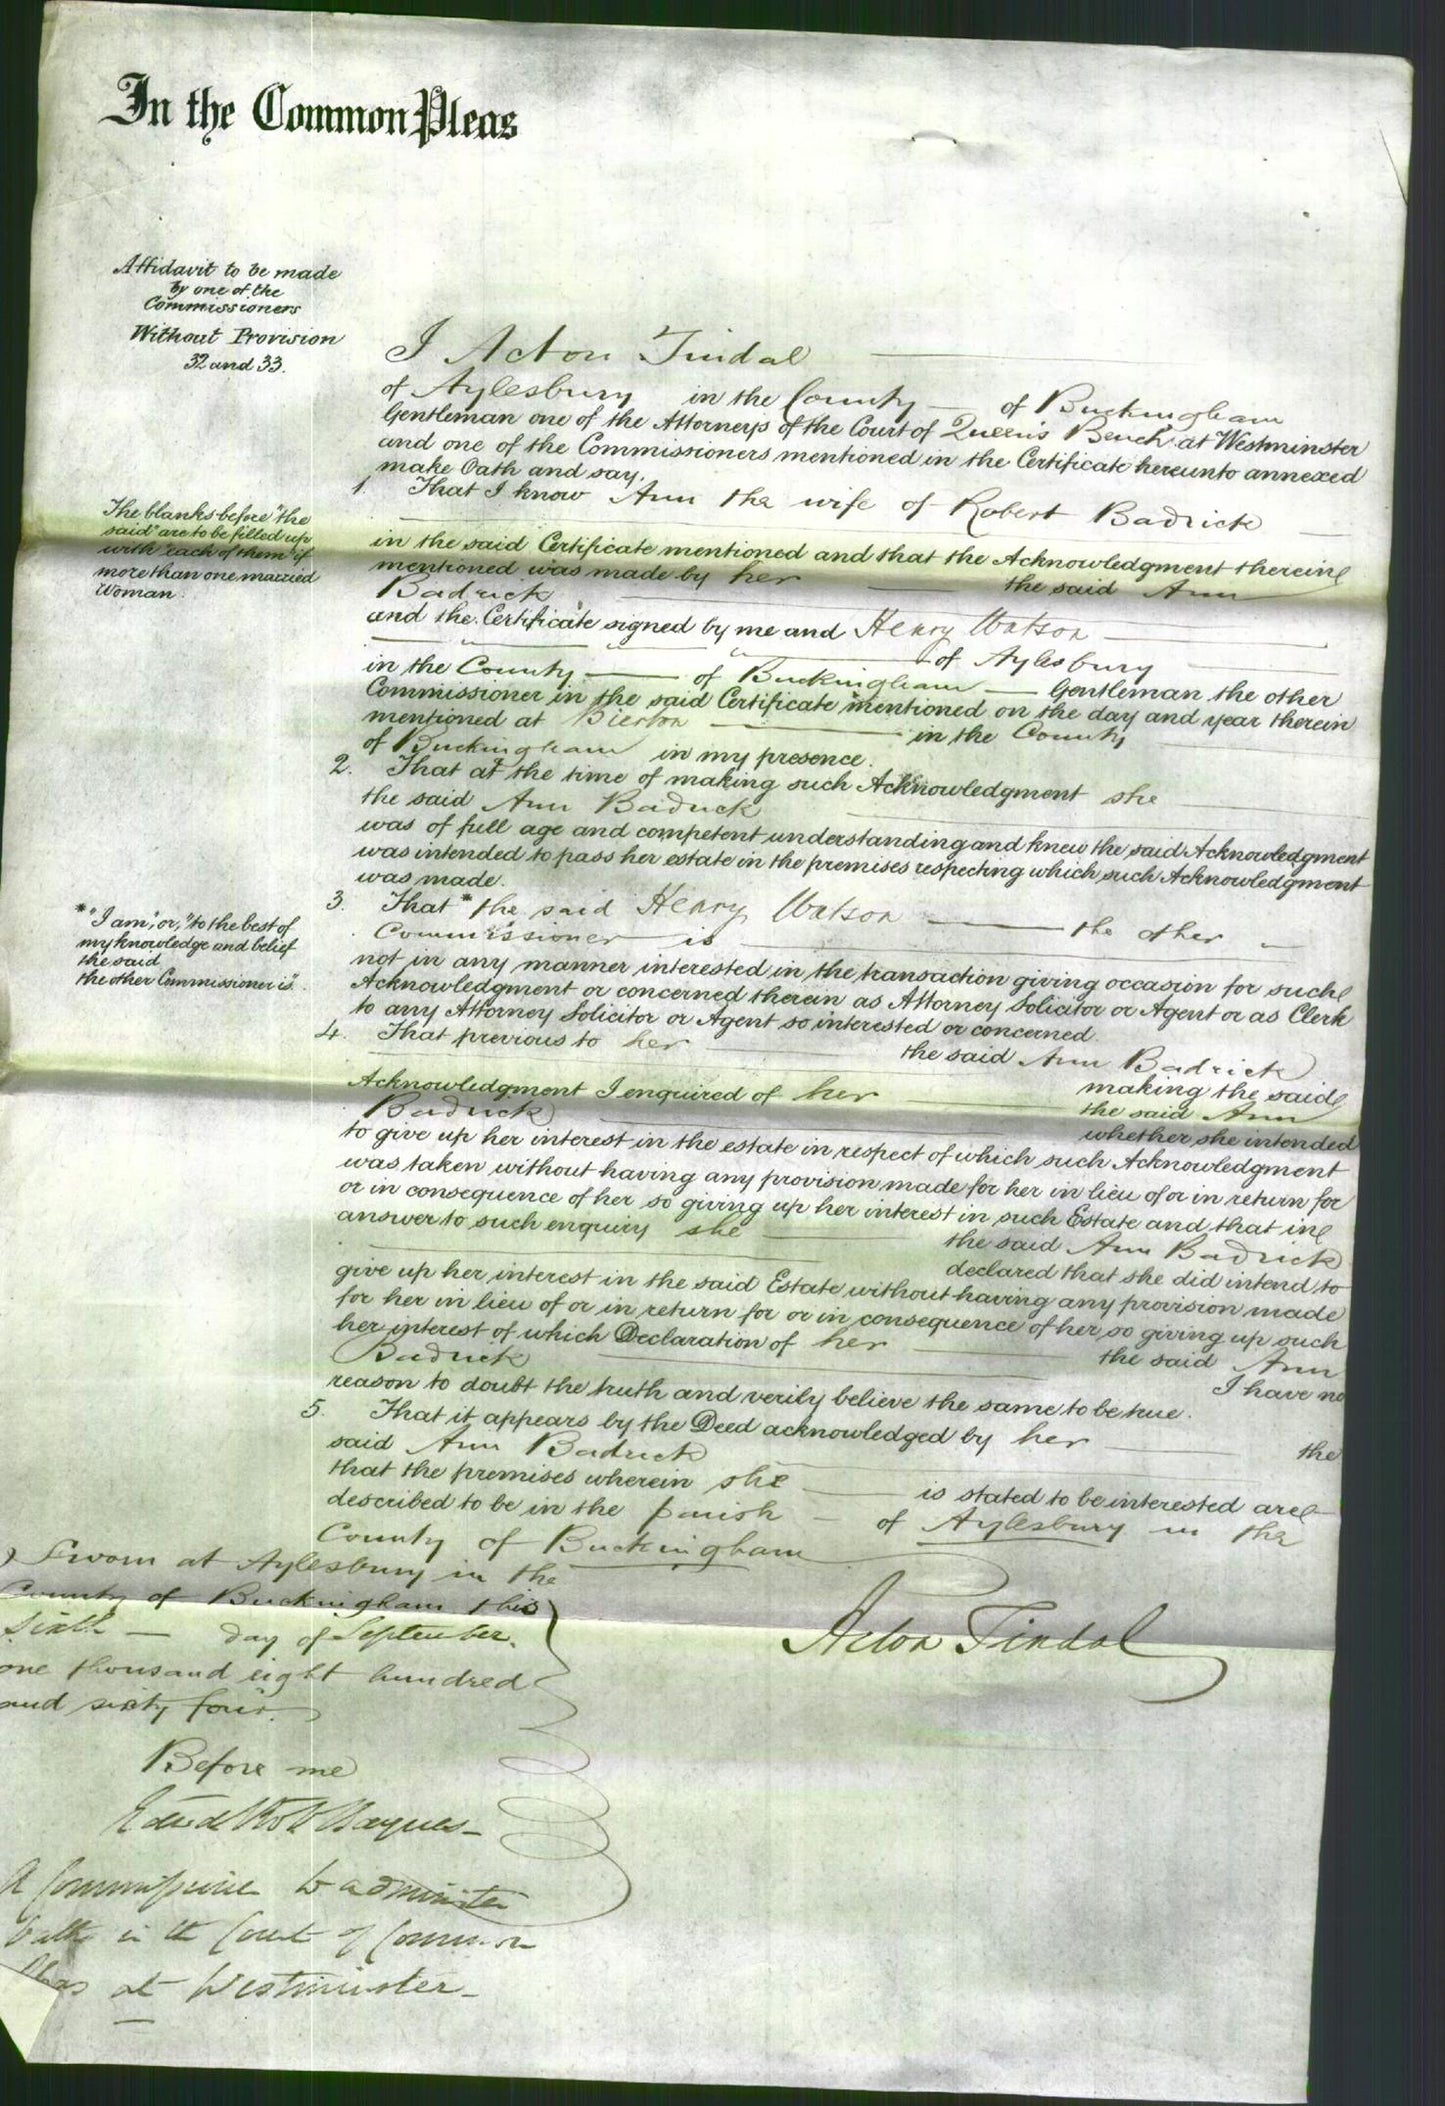 In the Common Pleas
Affidavit to be made
by one of the
Commissioners
Without Provision
32 and 33.
I Acton Tindal
of Aylesbury in the County of Buckingham
Gentleman one of the Attorneys of the Court of Queen's Bench at Westminster
and one of the Commissioners mentioned in the Certificate hereunto annexed
make Oath and say.
1. That I know Ann the wife of Robert Badrick
The blanks before "the
said" are to be filled up
with each of them if
more than one married
Woman.
in the said Certificate mentioned and that the Acknowledgment therein
mentioned was made by her the said Ann
Badrick
and the Certificate signed by me and Henry Watson
of Aylesbury
in the County of Buckingham Gentleman the other
Commissioner in the said Certificate mentioned on the day and year therein
mentioned at Bierton in the County
of Buckingham in my presence.
2. That at the time of making such Acknowledgment she
the said Ann Badrick
was of full age and competent understanding and knew the said Acknowledgment
was intended to pass her estate in the premises respecting which such Acknowledgment
was made.
3. That * the said Henry Watson the other
Commissioner is
*"I am", or, "to the best of
my knowledge and belief
the said
the other Commissioner is".
not in any manner interested in the transaction giving occasion for such
Acknowledgment or concerned therein as Attorney Solicitor or Agent or as Clerk
to any Attorney Solicitor or Agent so interested or concerned.
4. That previous to her the said Ann Badrick
making the said
Acknowledgment I enquired of her the said Ann
Badrick whether she intended
to give up her interest in the estate in respect of which such Acknowledgment
was taken without having any provision made for her in lieu of or in return for
or in consequence of her so giving up her interest in such Estate and that in
answer to such enquiry she the said Ann Badrick
declared that she did intend to
give up her interest in the said Estate without having any provision made
for her in lieu of or in return for or in consequence of her so giving up such
her interest of which Declaration of her the said Ann
Badrick I have no
reason to doubt the truth and verily believe the same to be true.
5. That it appears by the Deed acknowledged by her the
said Ann Badrick
that the premises wherein she is stated to be interested are
described to be in the parish of Aylesbury in the
County of Buckingham
Sworn at Aylesbury in the
County of Buckingham this
Sixth day of September
one thousand eight hundred
and sixty four.
Acton Tindal
Before me
A Commissioner to administer
Oaths in the Court of Common
Pleas at Westminster